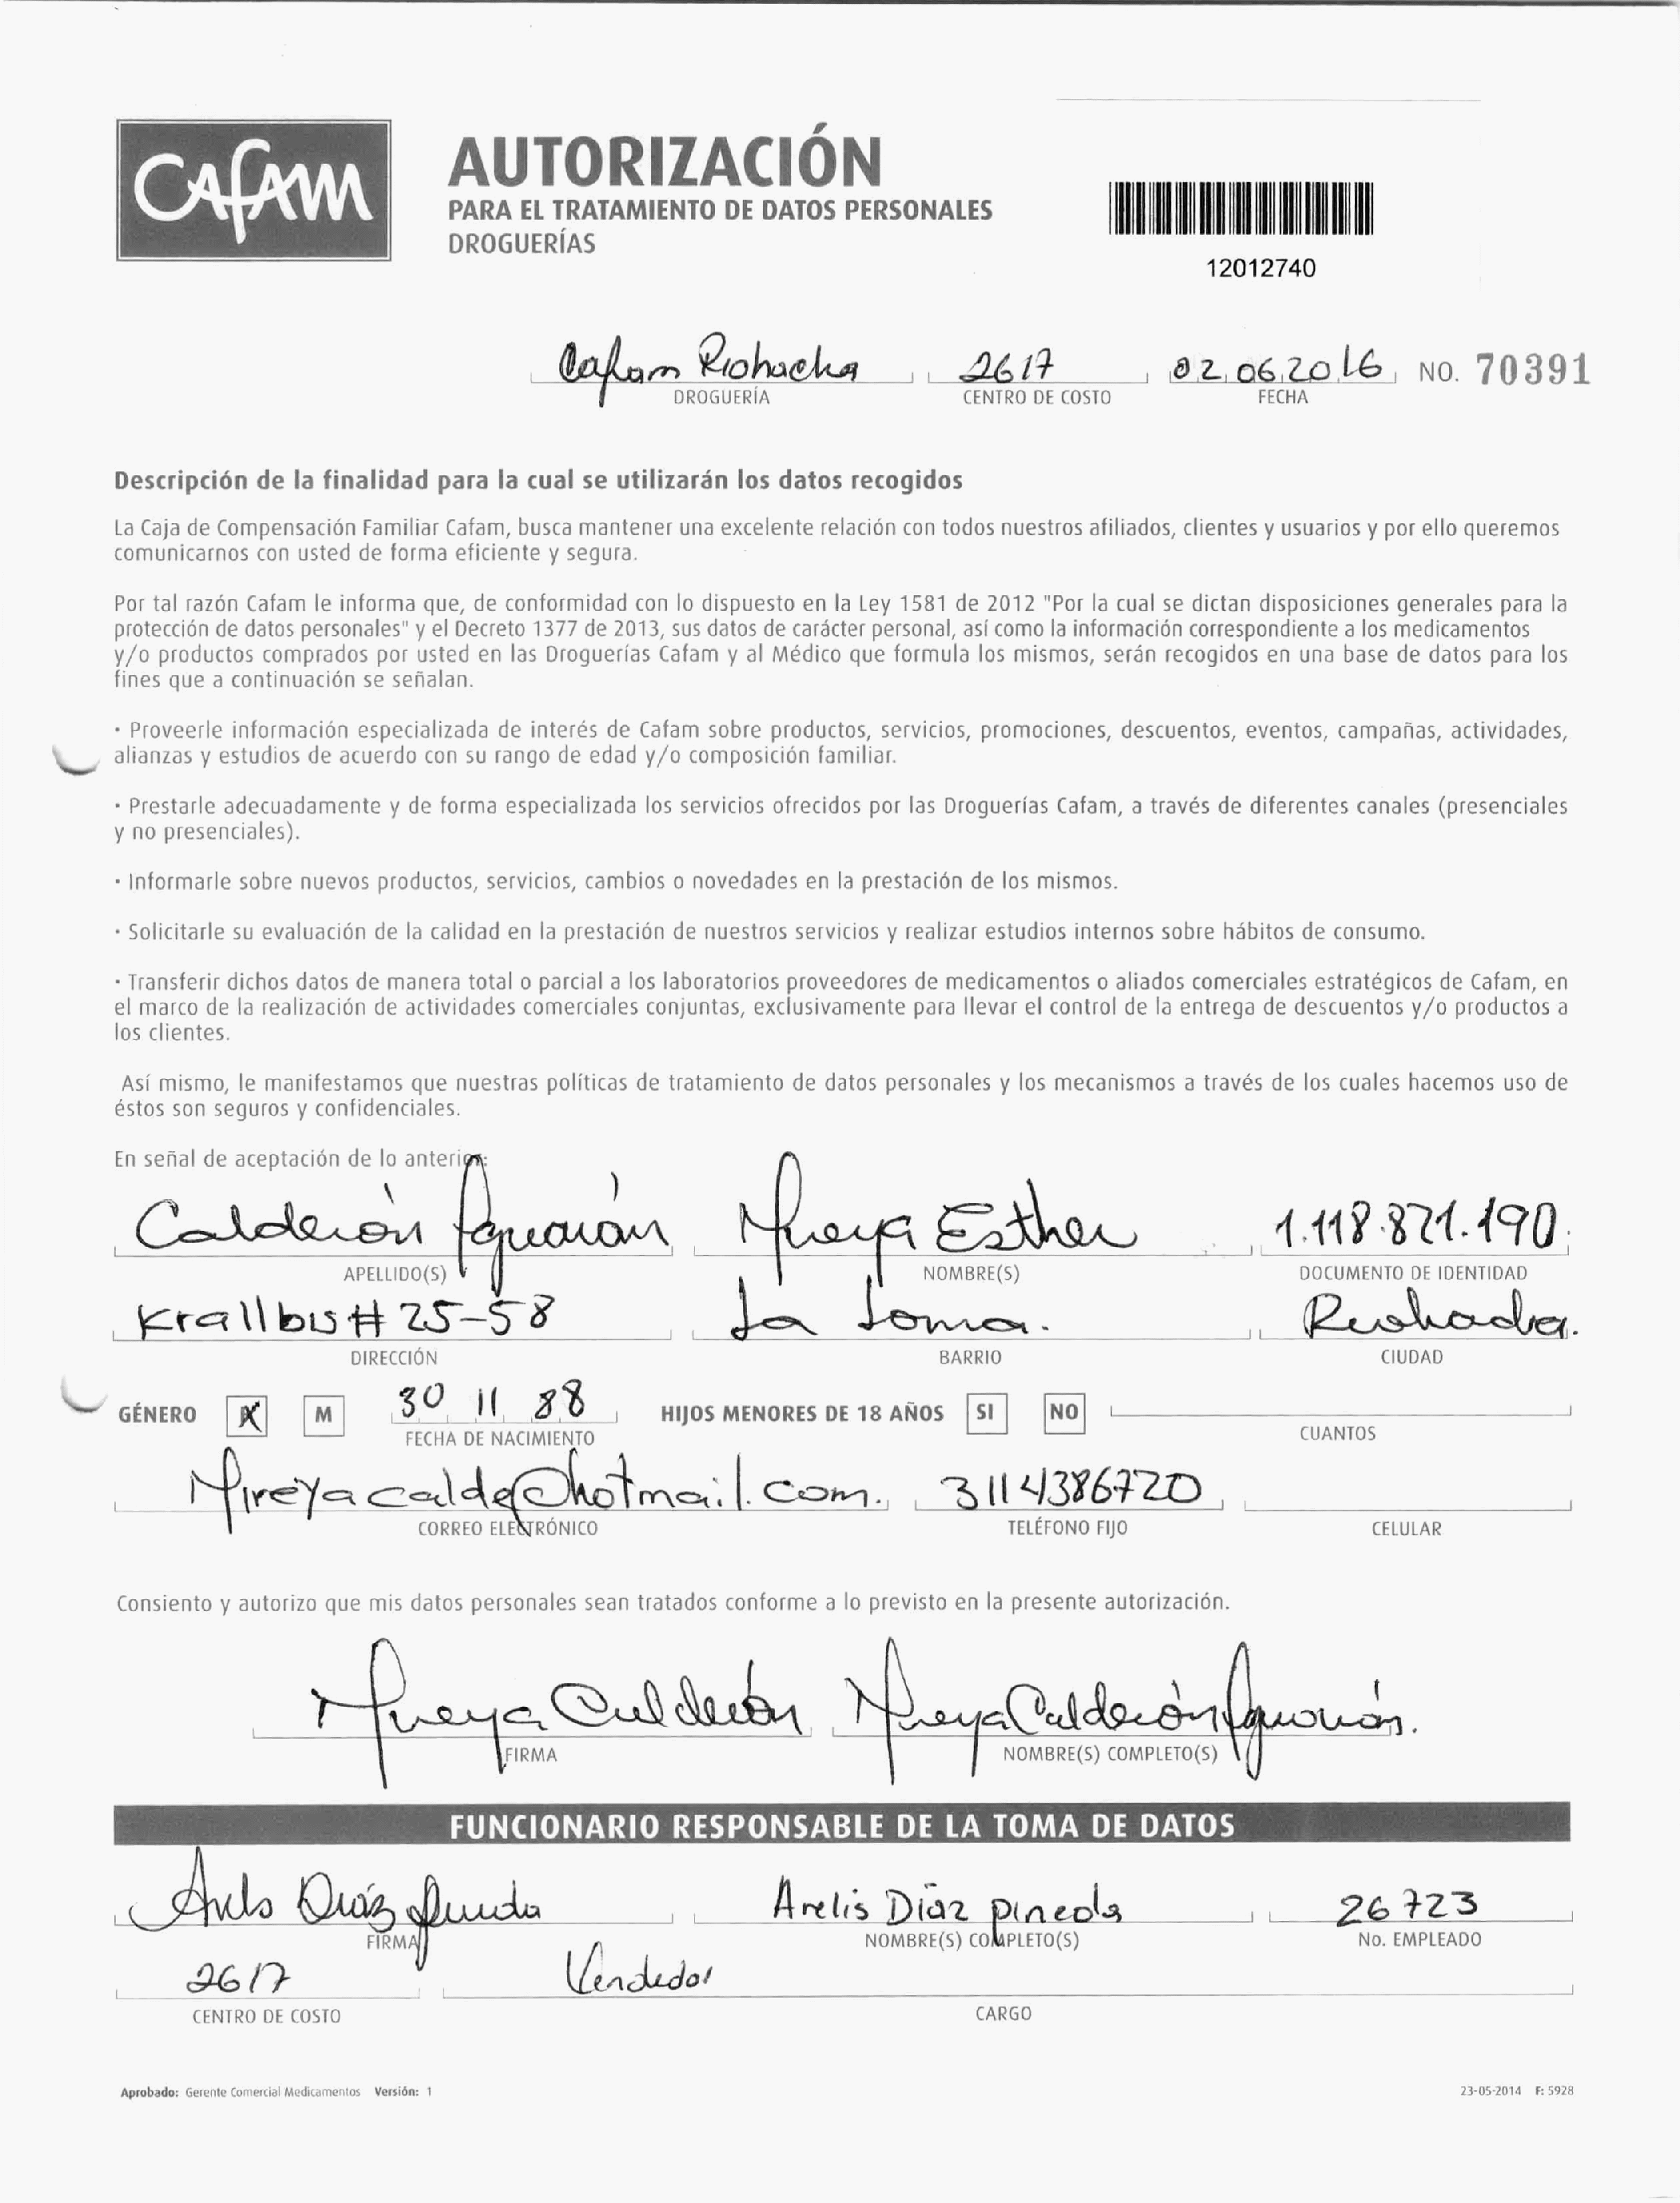 CAFAM
AUTORIZACIÓN
PARA EL TRATAMIENTO DE DATOS PERSONALES
DROGUERÍAS
12012740
Cafam Riohacha 2617 02 06 2016 NO. 70391
DROGUERÍA CENTRO DE COSTO FECHA
Descripción de la finalidad para la cual se utilizarán los datos recogidos
La Caja de Compensación Familiar Cafam, busca mantener una excelente relación con todos nuestros afiliados, clientes y usuarios y por ello queremos
comunicarnos con usted de forma eficiente y segura.
Por tal razón Cafam le informa que, de conformidad con lo dispuesto en la Ley 1581 de 2012 "Por la cual se dictan disposiciones generales para la
protección de datos personales" y el Decreto 1377 de 2013, sus datos de carácter personal, así como la información correspondiente a los medicamentos
y/o productos comprados por usted en las Droguerías Cafam y al Médico que formula los mismos, serán recogidos en una base de datos para los
fines que a continuación se señalan.
· Proveerle información especializada de interés de Cafam sobre productos, servicios, promociones, descuentos, eventos, campañas, actividades,
alianzas y estudios de acuerdo con su rango de edad y/o composición familiar.
· Prestarle adecuadamente y de forma especializada los servicios ofrecidos por las Droguerías Cafam, a través de diferentes canales (presenciales
y no presenciales).
· Informarle sobre nuevos productos, servicios, cambios o novedades en la prestación de los mismos.
· Solicitarle su evaluación de la calidad en la prestación de nuestros servicios y realizar estudios internos sobre hábitos de consumo.
· Transferir dichos datos de manera total o parcial a los laboratorios proveedores de medicamentos o aliados comerciales estratégicos de Cafam, en
el marco de la realización de actividades comerciales conjuntas, exclusivamente para llevar el control de la entrega de descuentos y/o productos a
los clientes.
Así mismo, le manifestamos que nuestras políticas de tratamiento de datos personales y los mecanismos a través de los cuales hacemos uso de
éstos son seguros y confidenciales.
En señal de aceptación de lo anterior:
Calderón Aguarán Mireya Esther 1.118.821.190
APELLIDO(S) NOMBRE(S) DOCUMENTO DE IDENTIDAD
Kra11bis# 25-58 La Loma. Riohacha.
DIRECCIÓN BARRIO CIUDAD
GÉNERO X M 30 11 88 HIJOS MENORES DE 18 AÑOS SI NO
FECHA DE NACIMIENTO CUANTOS
Mireyacalde@hotmail.com. 3114386720
CORREO ELECTRÓNICO TELÉFONO FIJO CELULAR
Consiento y autorizo que mis datos personales sean tratados conforme a lo previsto en la presente autorización.
Mireya Calderón Mireya Calderón Aguarán.
FIRMA NOMBRE(S) COMPLETO(S)
FUNCIONARIO RESPONSABLE DE LA TOMA DE DATOS
Arelis Diáz Pineda Arelis Díaz pineda 26723
FIRMA NOMBRE(S) COMPLETO(S) No. EMPLEADO
2617 Vendedor
CENTRO DE COSTO CARGO
Aprobado: Gerente Comercial Medicamentos Versión: 1 23-05-2014 F: 5928